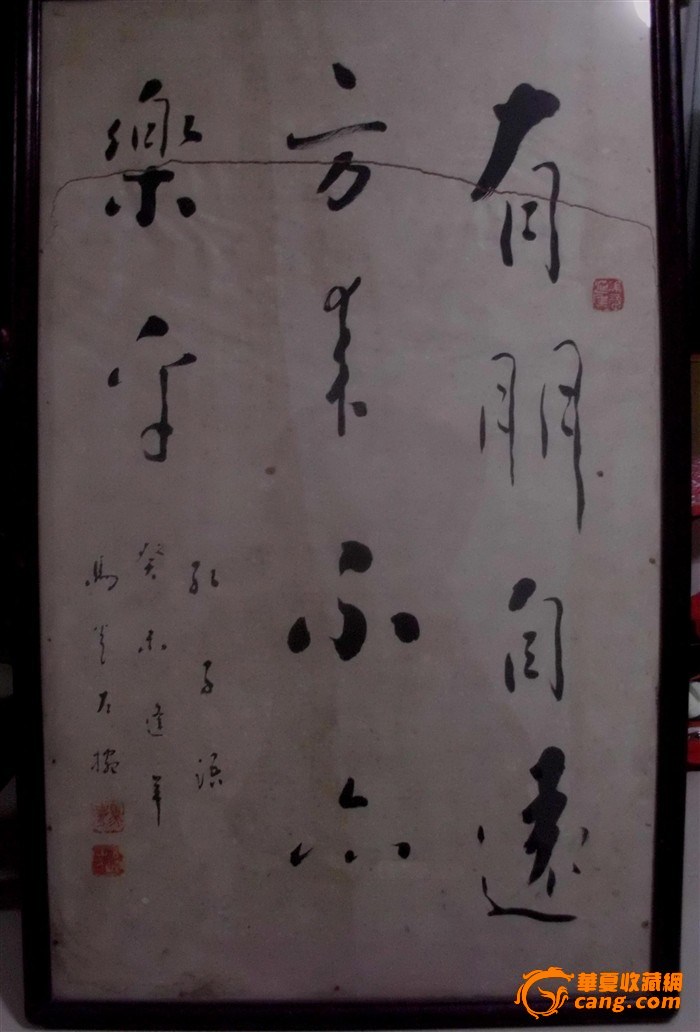 有朋自遠
方来不亦
樂乎
孔子語
癸未年
馬左
華夏收藏網
cang.com